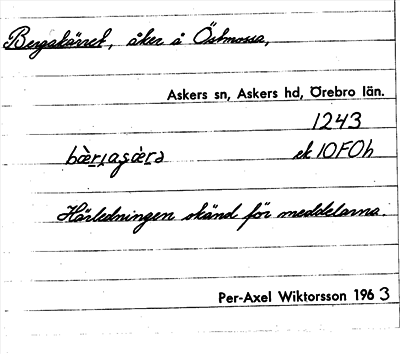 Bergakärret, åker å Östmossa,
Askers sn, Askers hd, Örebro län.
1243
bæ̀r̠ɩaʂæ̀r̠ə ek 10F0h
Härledningen okänd för meddelarna.
Per-Axel Wiktorsson 1963